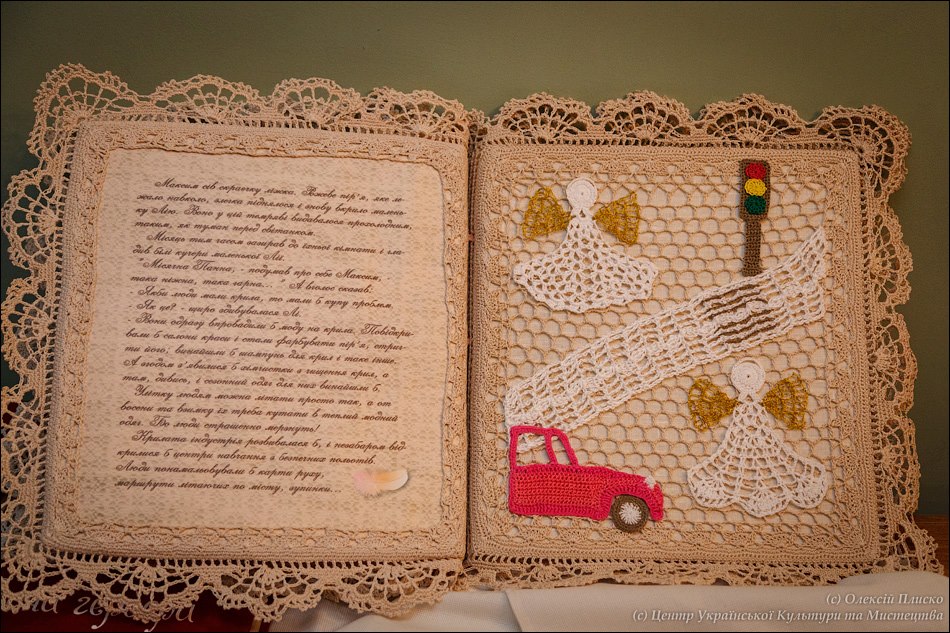 Максим сів скраєчку ліжка. Рожеве пір'я, яке ле-
жало навколо, злегка піднялося і знову вкрило малень-
ку Лію. Воно у цій темряві видавалося прохолодним,
таким, як туман перед світанком.
Місяць тим часом зазирав до їхньої кімнати і гла-
див білі кучері маленької Лії.
"Місячна Панна, - подумав про себе Максим,
така ніжна, така гарна..." А вголос сказав:
- Якби люди мали крила, то мали б купу проблем.
- Як це? - щиро здивувалася Лі.
- Вони одразу впровадили б моду на крила. Повідкри-
вали б салони краси і стали фарбувати пір'я, стриг-
ти його, винайшли б шампунь для крил і таке інше.
А згодом з'явилися б хімчистки з чищення крил, а
там, дивись, і сезонний одяг для них винайшли б.
Улітку людям можна літати просто так, а от
восени та взимку їх треба кутати в теплий модний
одяг. Бо люди страшенно мерзнуть!
Крилата індустрія розвивалася б, і незабаром від-
крилися б центри навчання з безпечних польотів.
Люди понамальовували б карти руху,
маршрути літаючих по місту, зупинки...
(c) Олексій Плиско
(c) Центр Української Культури та Мистецтва